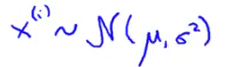 x^(i) ~ N(μ, σ²)